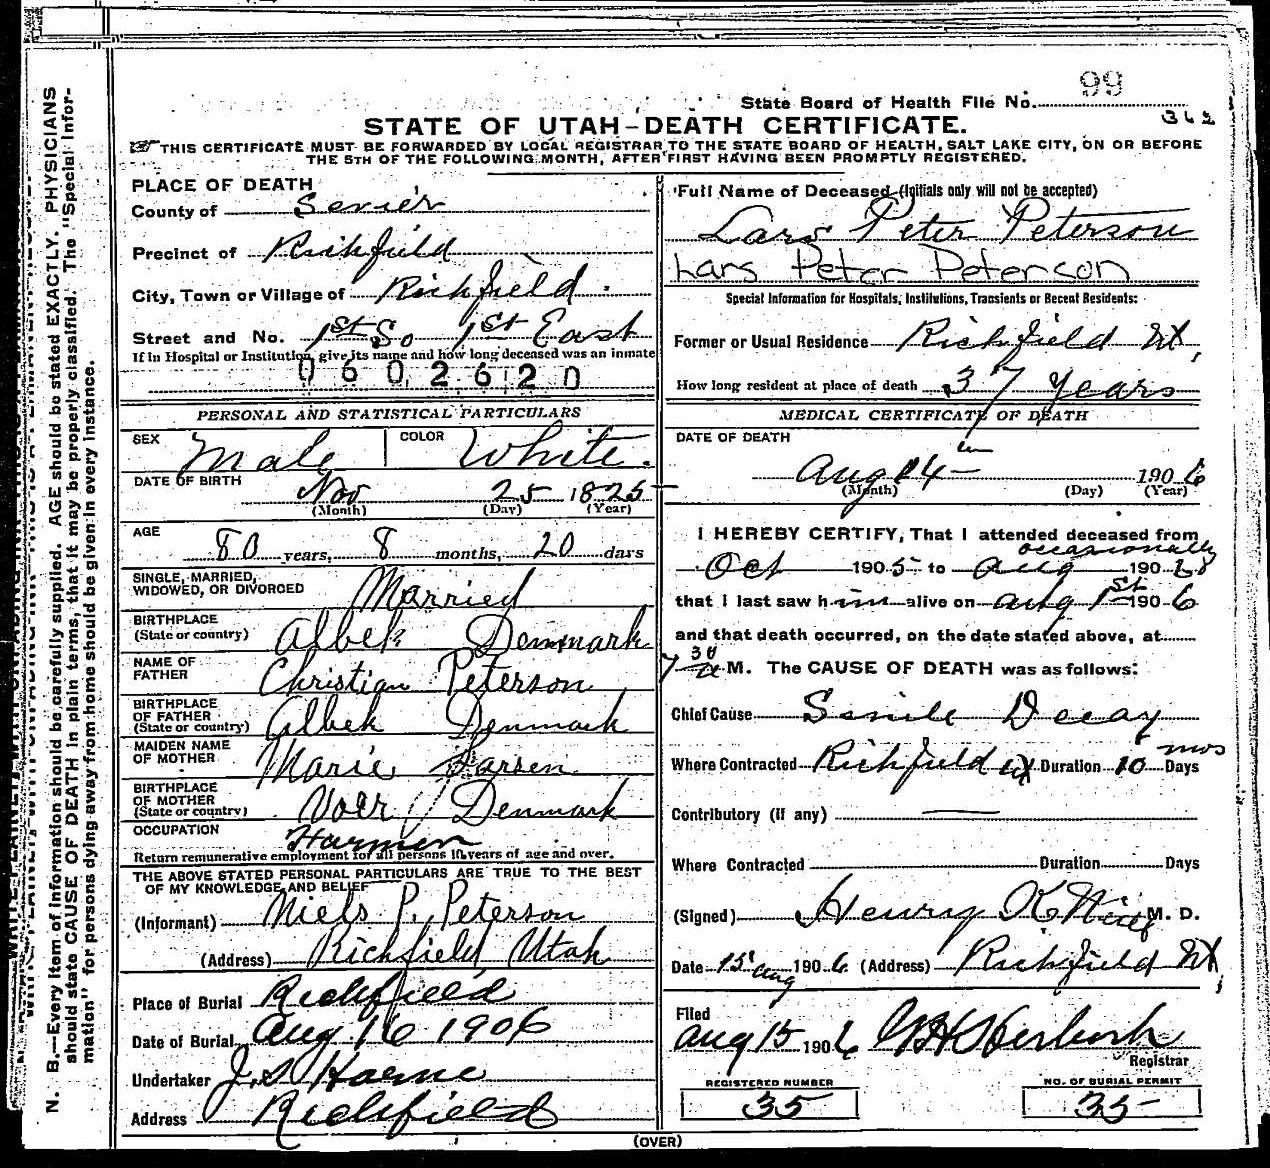 State Board of Health File No. 99
STATE OF UTAH-DEATH CERTIFICATE.
THIS CERTIFICATE MUST BE FORWARDED BY LOCAL REGISTRAR TO THE STATE BOARD OF HEALTH, SALT LAKE CITY, ON OR BEFORE
THE 5TH OF THE FOLLOWING MONTH, AFTER FIRST HAVING BEEN PROMPTLY REGISTERED.
N. B.—Every item of information should be carefully supplied. AGE should be stated EXACTLY. PHYSICIANS
should state CAUSE OF DEATH in plain terms, that it may be properly classified. The "Special Infor-
mation" for persons dying away from home should be given in every instance.
PLACE OF DEATH
County of Sevier
Precinct of Richfield
City, Town or Village of Richfield.
Street and No. 1st So 1st East
If in Hospital or Institution, give its name and how long deceased was an inmate
0602620
PERSONAL AND STATISTICAL PARTICULARS
SEX Male COLOR White.
DATE OF BIRTH Nov 25 1825
(Month) (Day) (Year)
AGE 80 years, 8 months, 20 days
SINGLE, MARRIED,
WIDOWED, OR DIVORCED Married
BIRTHPLACE
(State or country) Albek Denmark
NAME OF
FATHER Christian Peterson
BIRTHPLACE
OF FATHER
(State or country) Albek Denmark
MAIDEN NAME
OF MOTHER Marie Larsen
BIRTHPLACE
OF MOTHER
(State or country) Voer Denmark
OCCUPATION Farmer
Return remunerative employment for all persons 10 years of age and over.
THE ABOVE STATED PERSONAL PARTICULARS ARE TRUE TO THE BEST
OF MY KNOWLEDGE AND BELIEF
(Informant) Niels P. Peterson
(Address) Richfield Utah
Place of Burial Richfield
Date of Burial Aug 16 1906
Undertaker J. S. Horne
Address Richfield
Full Name of Deceased (Initials only will not be accepted)
Lars Peter Peterson
Lars Peter Peterson
Special Information for Hospitals, Institutions, Transients or Recent Residents:
Former or Usual Residence Richfield Ut,
How long resident at place of death 37 Years
MEDICAL CERTIFICATE OF DEATH
DATE OF DEATH
Aug 14 1906
(Month) (Day) (Year)
I HEREBY CERTIFY, That I attended deceased from
occasionally
Oct 1905 to Aug 1906
that I last saw him alive on Aug 1st 1906
and that death occurred, on the date stated above, at
7 30 a M. The CAUSE OF DEATH was as follows:
Chief Cause Senile Decay
Where Contracted Richfield Ut Duration 10 mos Days
Contributory (if any)
Where Contracted Duration Days
(Signed) Henry K M. D.
Date 15 Aug 1906 (Address) Richfield Ut,
Filed
Aug 15 1906
Registrar
REGISTERED NUMBER
35
NO. OF BURIAL PERMIT
35
(OVER)